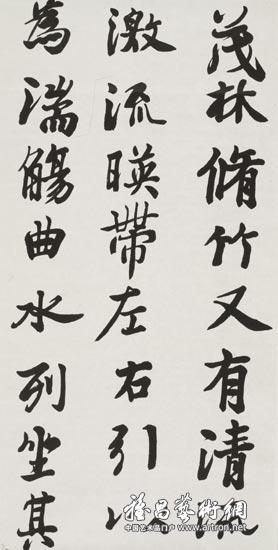 茂林脩竹又有清
激流暎帶左右引以
為湍觴曲水列坐其
雅昌藝術網
中国艺术品门户 www.artron.net